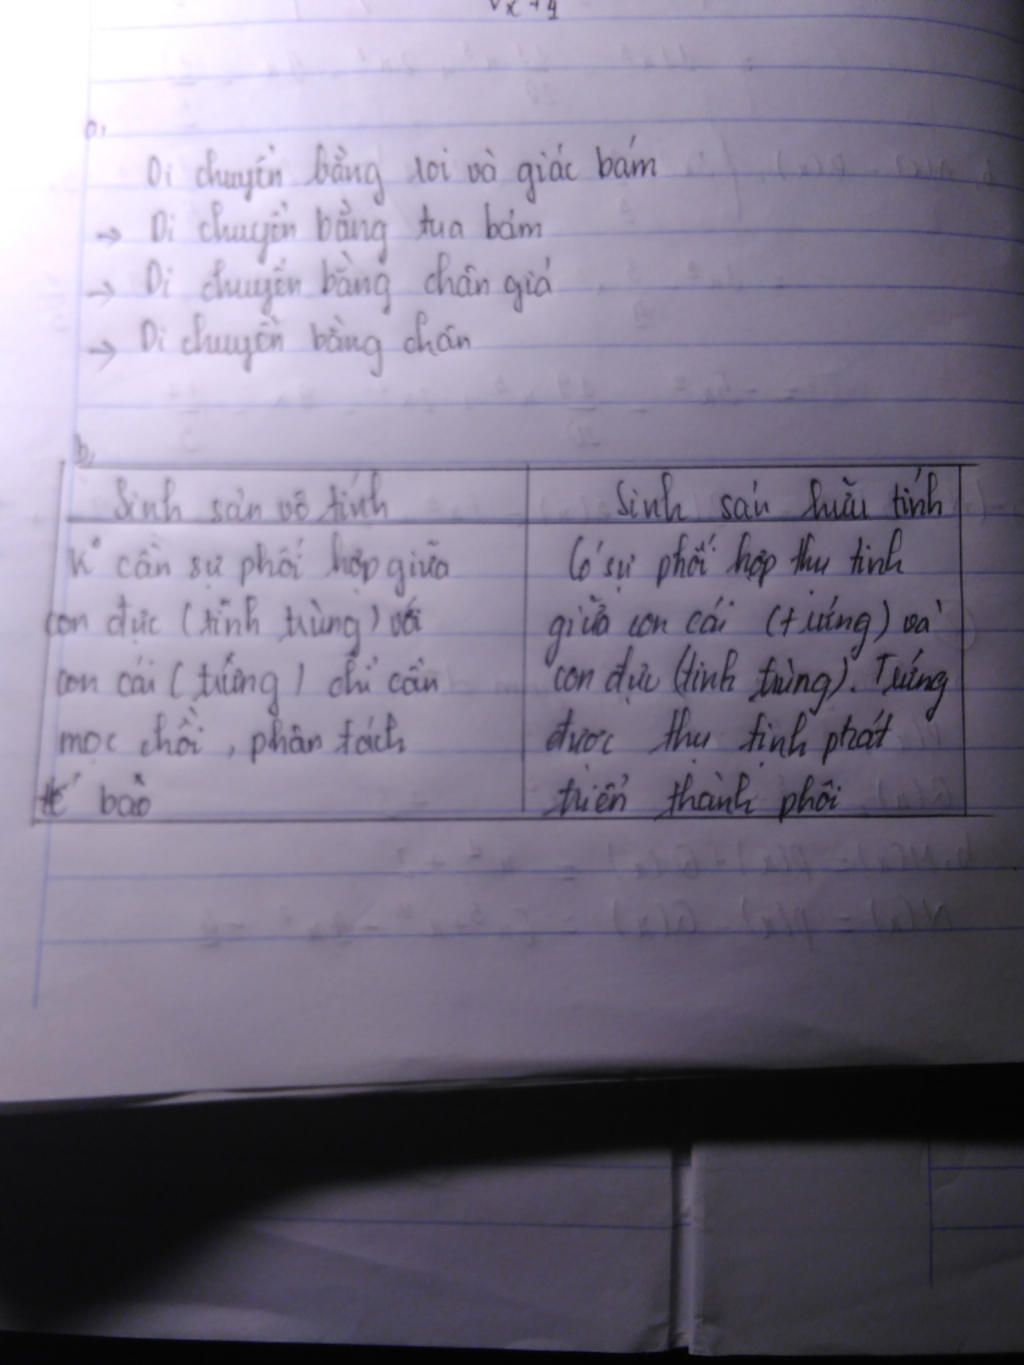 √x+4
a,
Di chuyển bằng roi và giác bám
→ Di chuyển bằng tua bám
→ Di chuyển bằng chân giả
→ Di chuyển bằng chân
b,
Sinh sản vô tính
K° cần sự phối hợp giữa
con đực (tinh trùng) với
con cái (trứng) chỉ cần
mọc chồi, phân tách
tế bào
Sinh sản hữu tính
Có sự phối hợp thụ tinh
giữa con cái (trứng) và
con đực (tinh trùng). Trứng
được thụ tinh phát
triển thành phôi